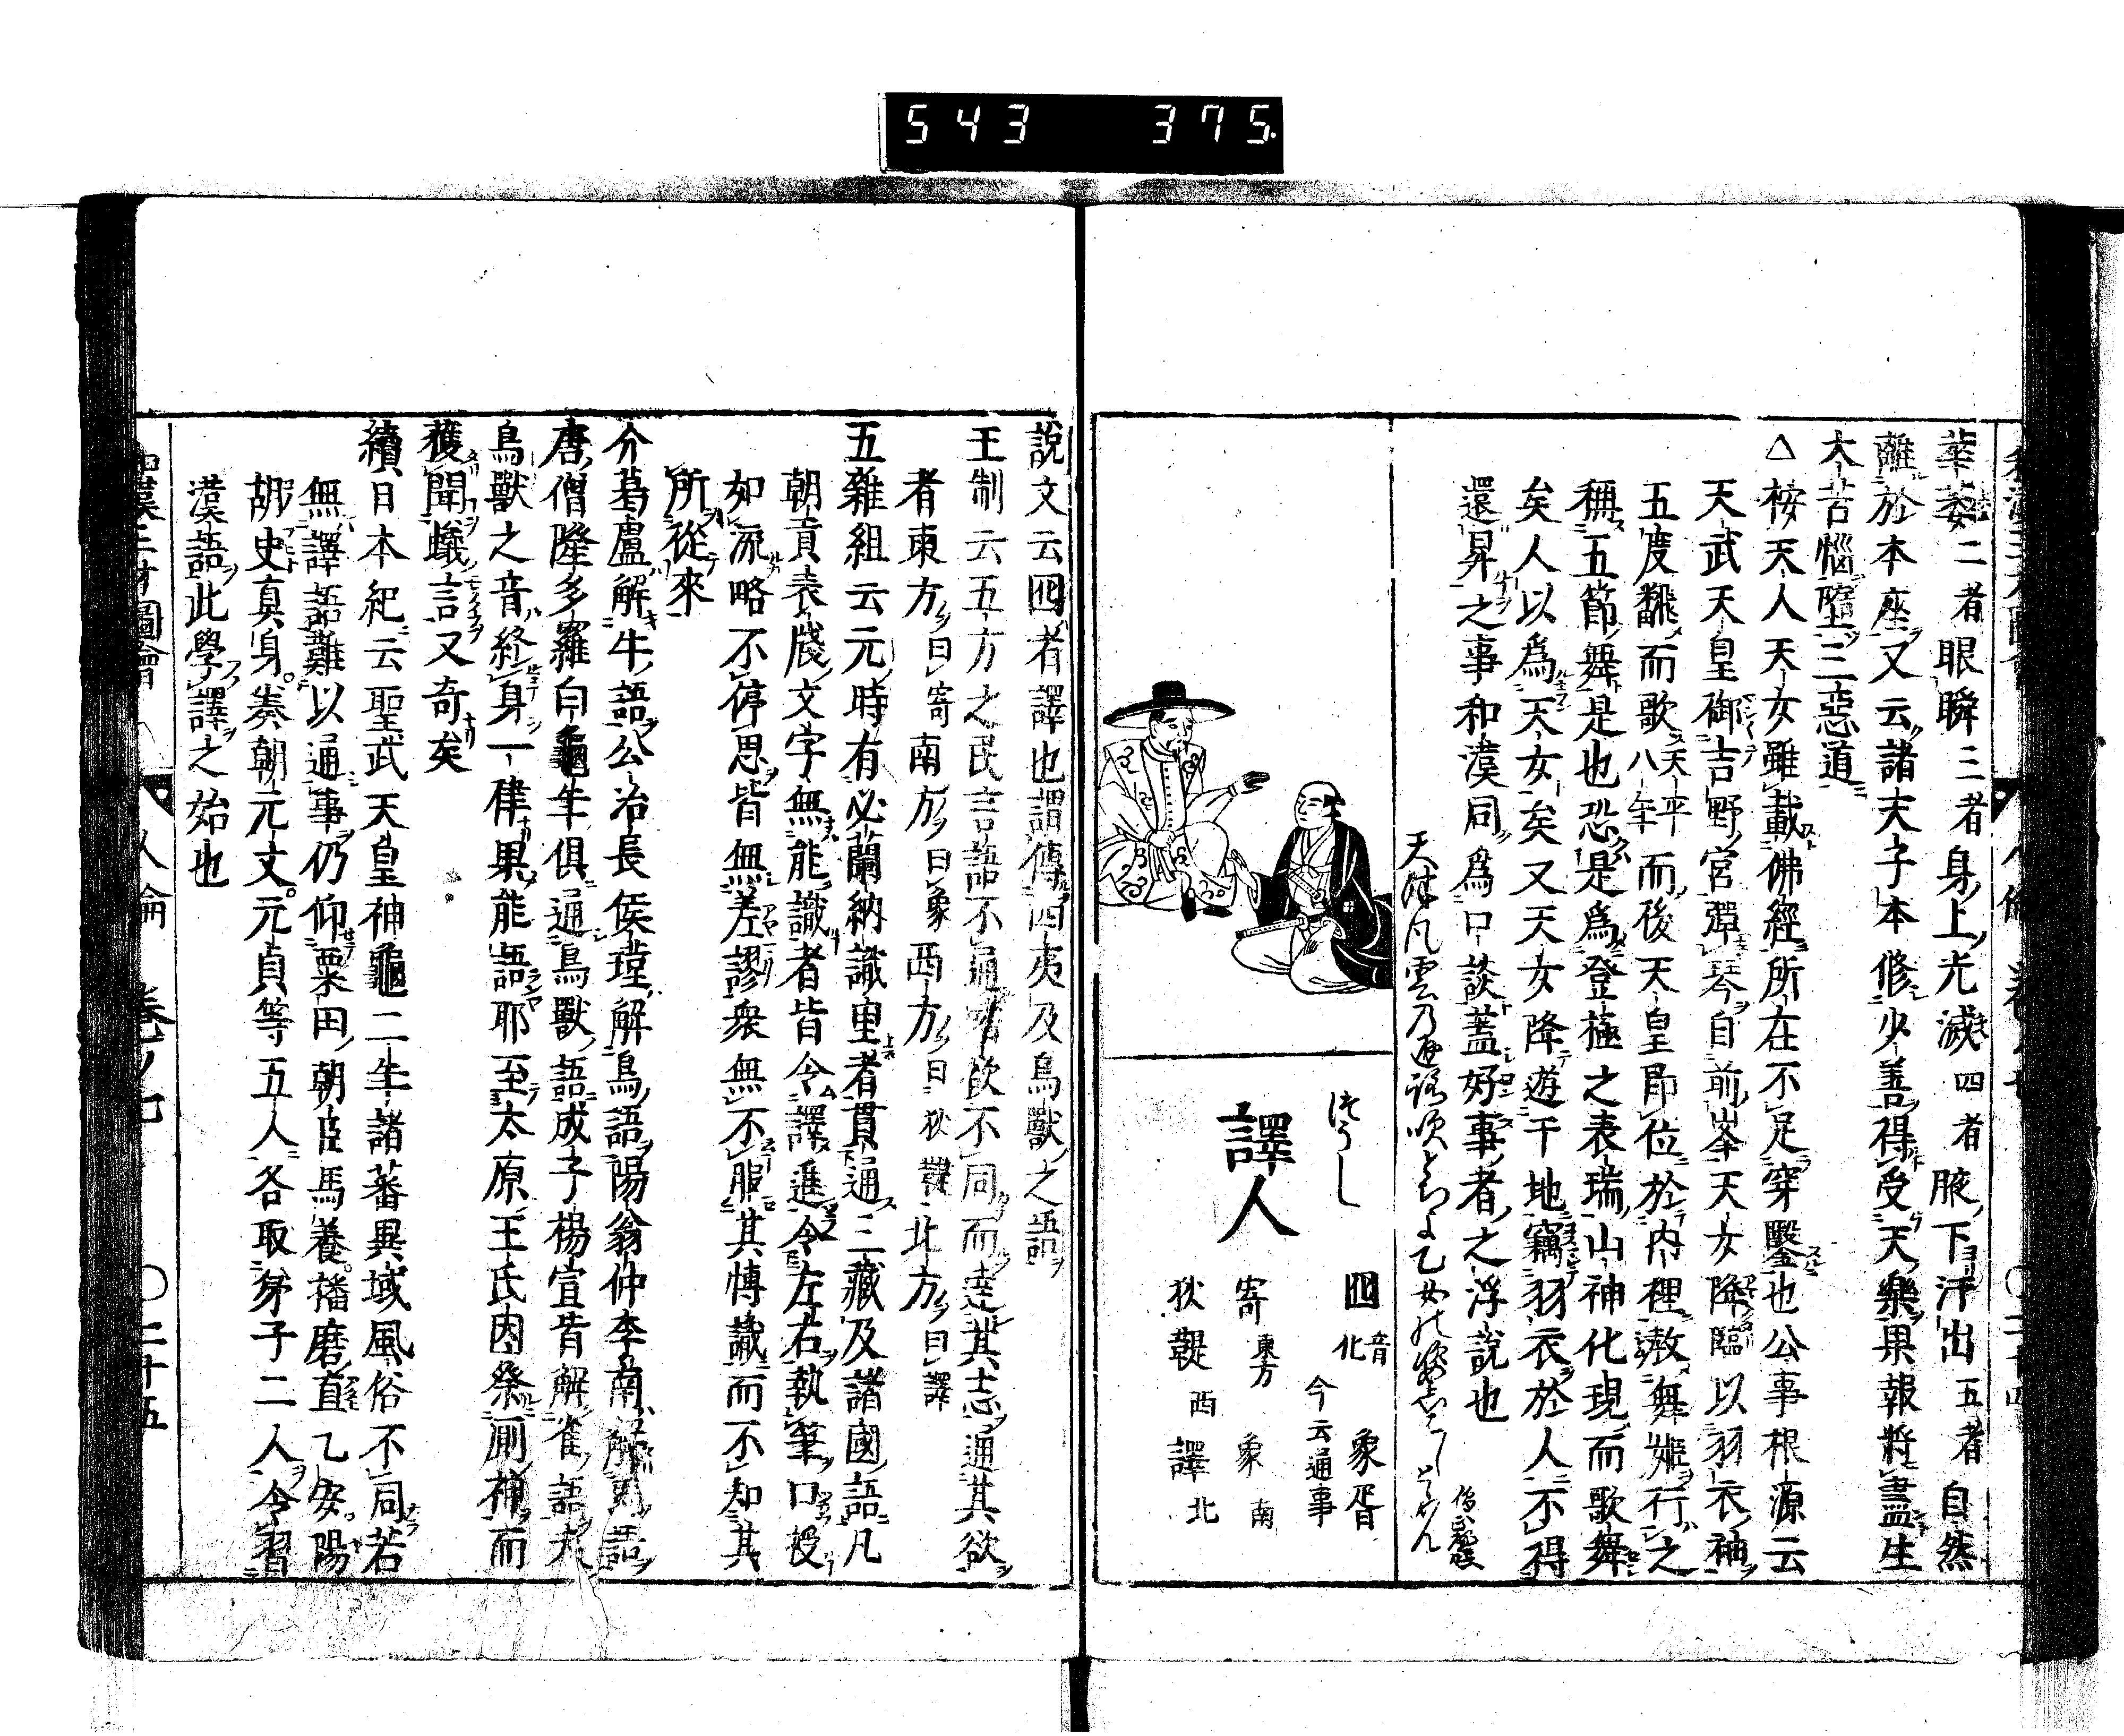 543 375.
華萎二者眼瞬三者身上光滅四者腋下汗出五者自然
離於本座又云諸天子本修少善得受天樂果報將盡生
大苦惱墮三惡道
△桉天人天女雖載佛經所在不足穿鑿也公事根源云
天武天皇御吉野宮彈琴自前峯天女降臨以羽衣袖
五度飜而歌天平八年而後天皇即位於內裡遨舞姬行之
稱五節舞是也恐是爲登極之表瑞山神化現而歌舞
矣人以爲天女矣又天女降遊于地竊羽衣於人不得
還昇之事和漢同爲口談蓋好事者之浮說也
譯人
囮 音化
象胥
今云通事
寄 東方 象 南
狄鞮 西 譯 北
說文云囮者譯也謂傳四夷及鳥獸之語
王制云五方之民言語不通嗜欲不同而達其志通其欲
者東方曰寄南方曰象西方曰狄鞮北方曰譯
五雜組云元時有必蘭納識里者貫通三藏及諸國語凡
朝貢表牋文字無能識者皆令譯進令左右執筆口授
如流略不停思皆無差謬衆無不服其博識而不知其
所從來
介葛盧解牛語公冶長侯瑾解鳥語陽翁仲李南解馬語
唐僧隆多羅白龜年俱通鳥獸語成子楊宣皆解雀語夫
鳥獸之音終身一律果能語耶至太原王氏因祭厠神而
獲聞蟻言又奇矣
續日本紀云聖武天皇神龜二年諸蕃異域風俗不同若
無譯語難以通事仍仰粟田朝臣馬養播磨直乙安陽
胡史真身秦朝元文元貞等五人各取弟子二人令習
漢語此學譯之始也
和漢三才圖會 人倫 卷ノ七 〇二十五